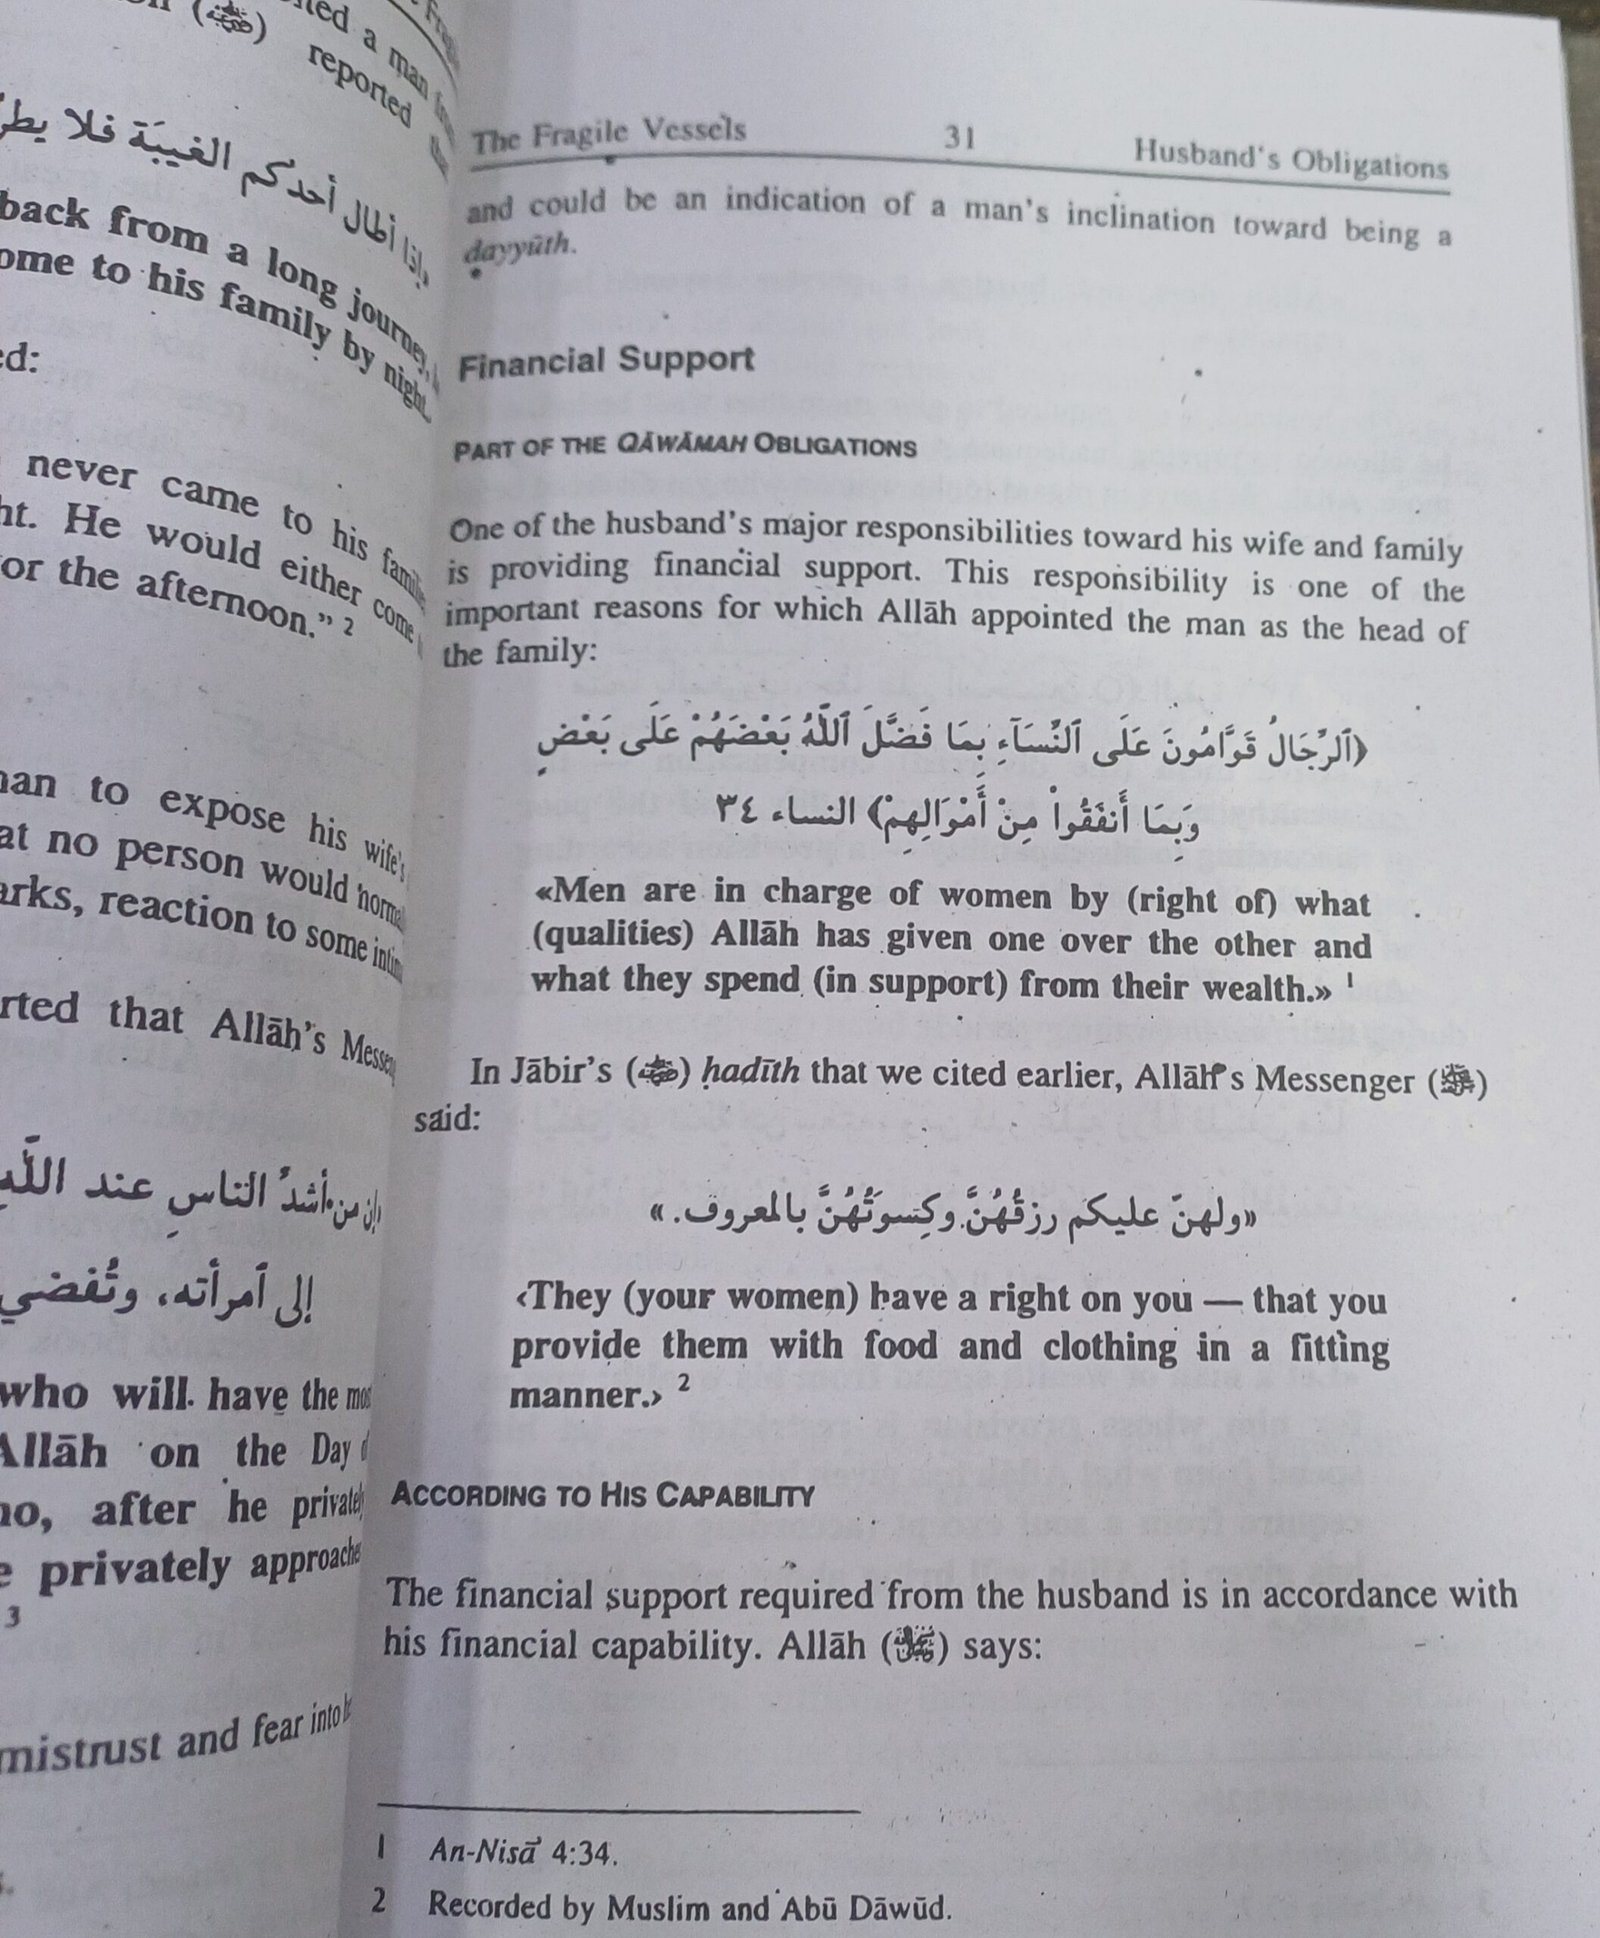 ted a man
reported the
أطال أحدكم الغيبَة فلا
back from a long journey,
ome to his family by night.
ed:
never came to his
ht. He would either come
or the afternoon.” 2
an to expose his wife's
at no person would
arks, reaction to some
rted that Allāh's
إن من أشدُّ الناسِ عند اللَّه
إلى ٱمرأته، وتُفضي
who will have the
Allāh on the Day
no, after he
e privately
3
mistrust and fear into
The Fragile Vessels 31 Husband's Obligations
and could be an indication of a man's inclination toward being a
dayyūth.
Financial Support
PART OF THE QĀWĀMAH OBLIGATIONS
One of the husband's major responsibilities toward his wife and family
is providing financial support. This responsibility is one of the
important reasons for which Allāh appointed the man as the head of
the family:
﴿ٱلرِّجَالُ قَوَّامُونَ عَلَى ٱلنِّسَآءِ بِمَا فَضَّلَ ٱللَّهُ بَعْضَهُمْ عَلَى بَعْضٍ
وَبِمَا أَنفَقُواْ مِنْ أَمْوَالِهِمْ﴾ النساء ٣٤
«Men are in charge of women by (right of) what
(qualities) Allāh has given one over the other and
what they spend (in support) from their wealth.» 1
In Jābir's (رضي الله عنه) ḥadīth that we cited earlier, Allāh's Messenger (ﷺ)
said:
«ولهنّ عليكم رزقُهُنَّ وكِسوَتُهُنَّ بالمعروف.»
‹They (your women) have a right on you — that you
provide them with food and clothing in a fitting
manner.› 2
ACCORDING TO HIS CAPABILITY
The financial support required from the husband is in accordance with
his financial capability. Allāh (ﷻ) says:
1 An-Nisā 4:34.
2 Recorded by Muslim and Abū Dāwūd.